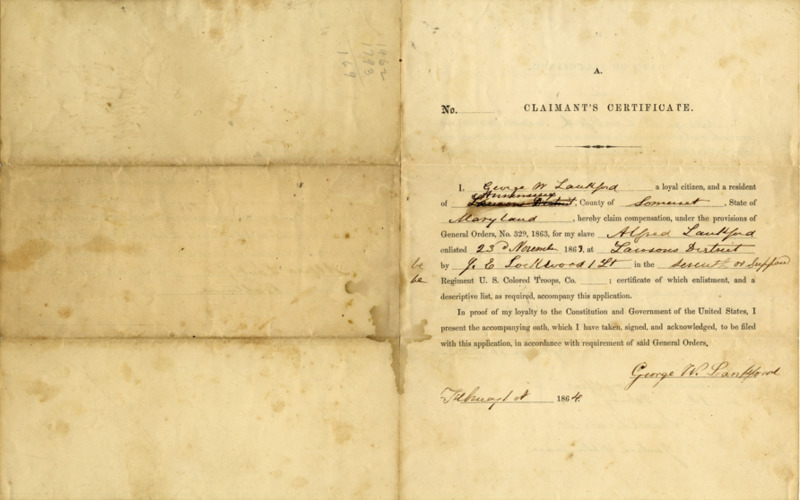 1962
1793
169
A.
No. CLAIMANT'S CERTIFICATE.
I, George W Lankford a loyal citizen, and a resident
Annamessix
of Lawsons District, County of Somerset, State of
Maryland, hereby claim compensation, under the provisions of
General Orders, No. 329, 1863, for my slave Alfred Lankford
enlisted 23d Novemb 1863, at Lawsons District
by J. E Lockwood 1 Lt in the Seventh as I suppose
to be Regiment U. S. Colored Troops, Co. ; certificate of which enlistment, and a
descriptive list, as required, accompany this application.
In proof of my loyalty to the Constitution and Government of the United States, I
present the accompanying oath, which I have taken, signed, and acknowledged, to be filed
with this application, in accordance with requirement of said General Orders.
George W. Lankford
1864.